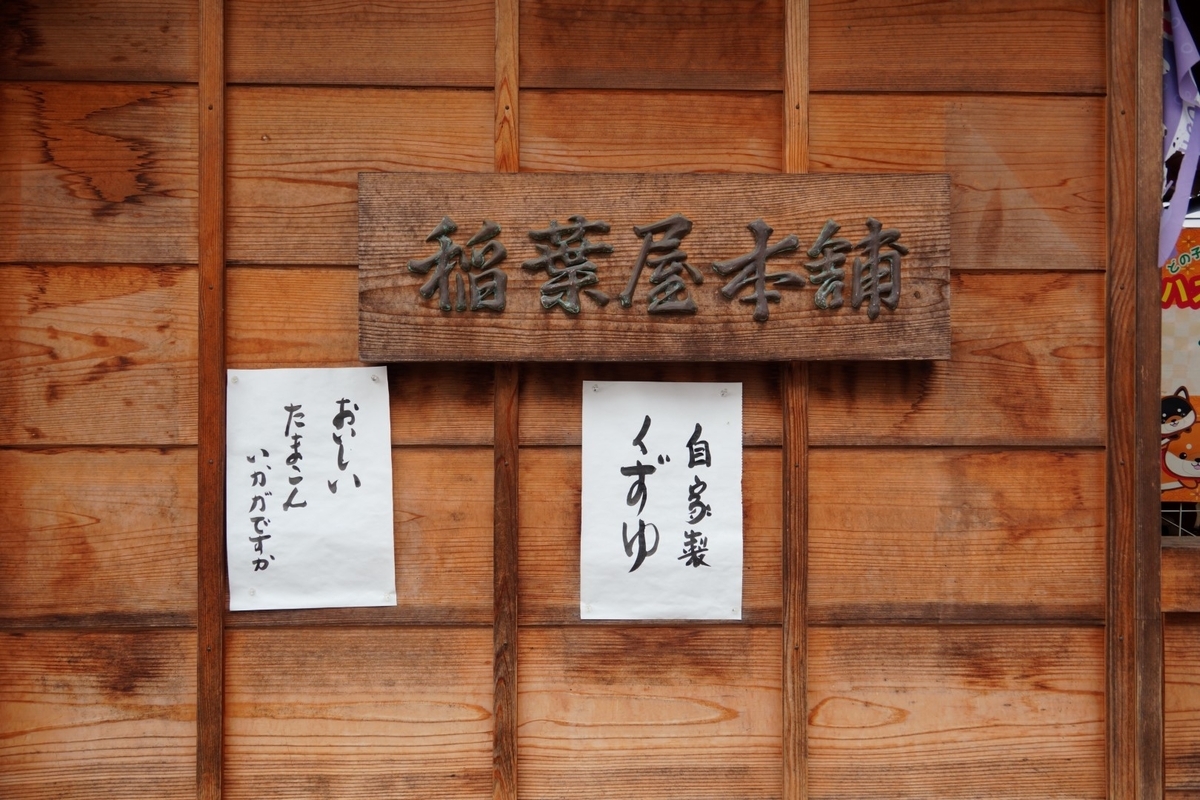 稲葉屋本舗
おいしい
たまこん
いかがですか
自家製
くずゆ